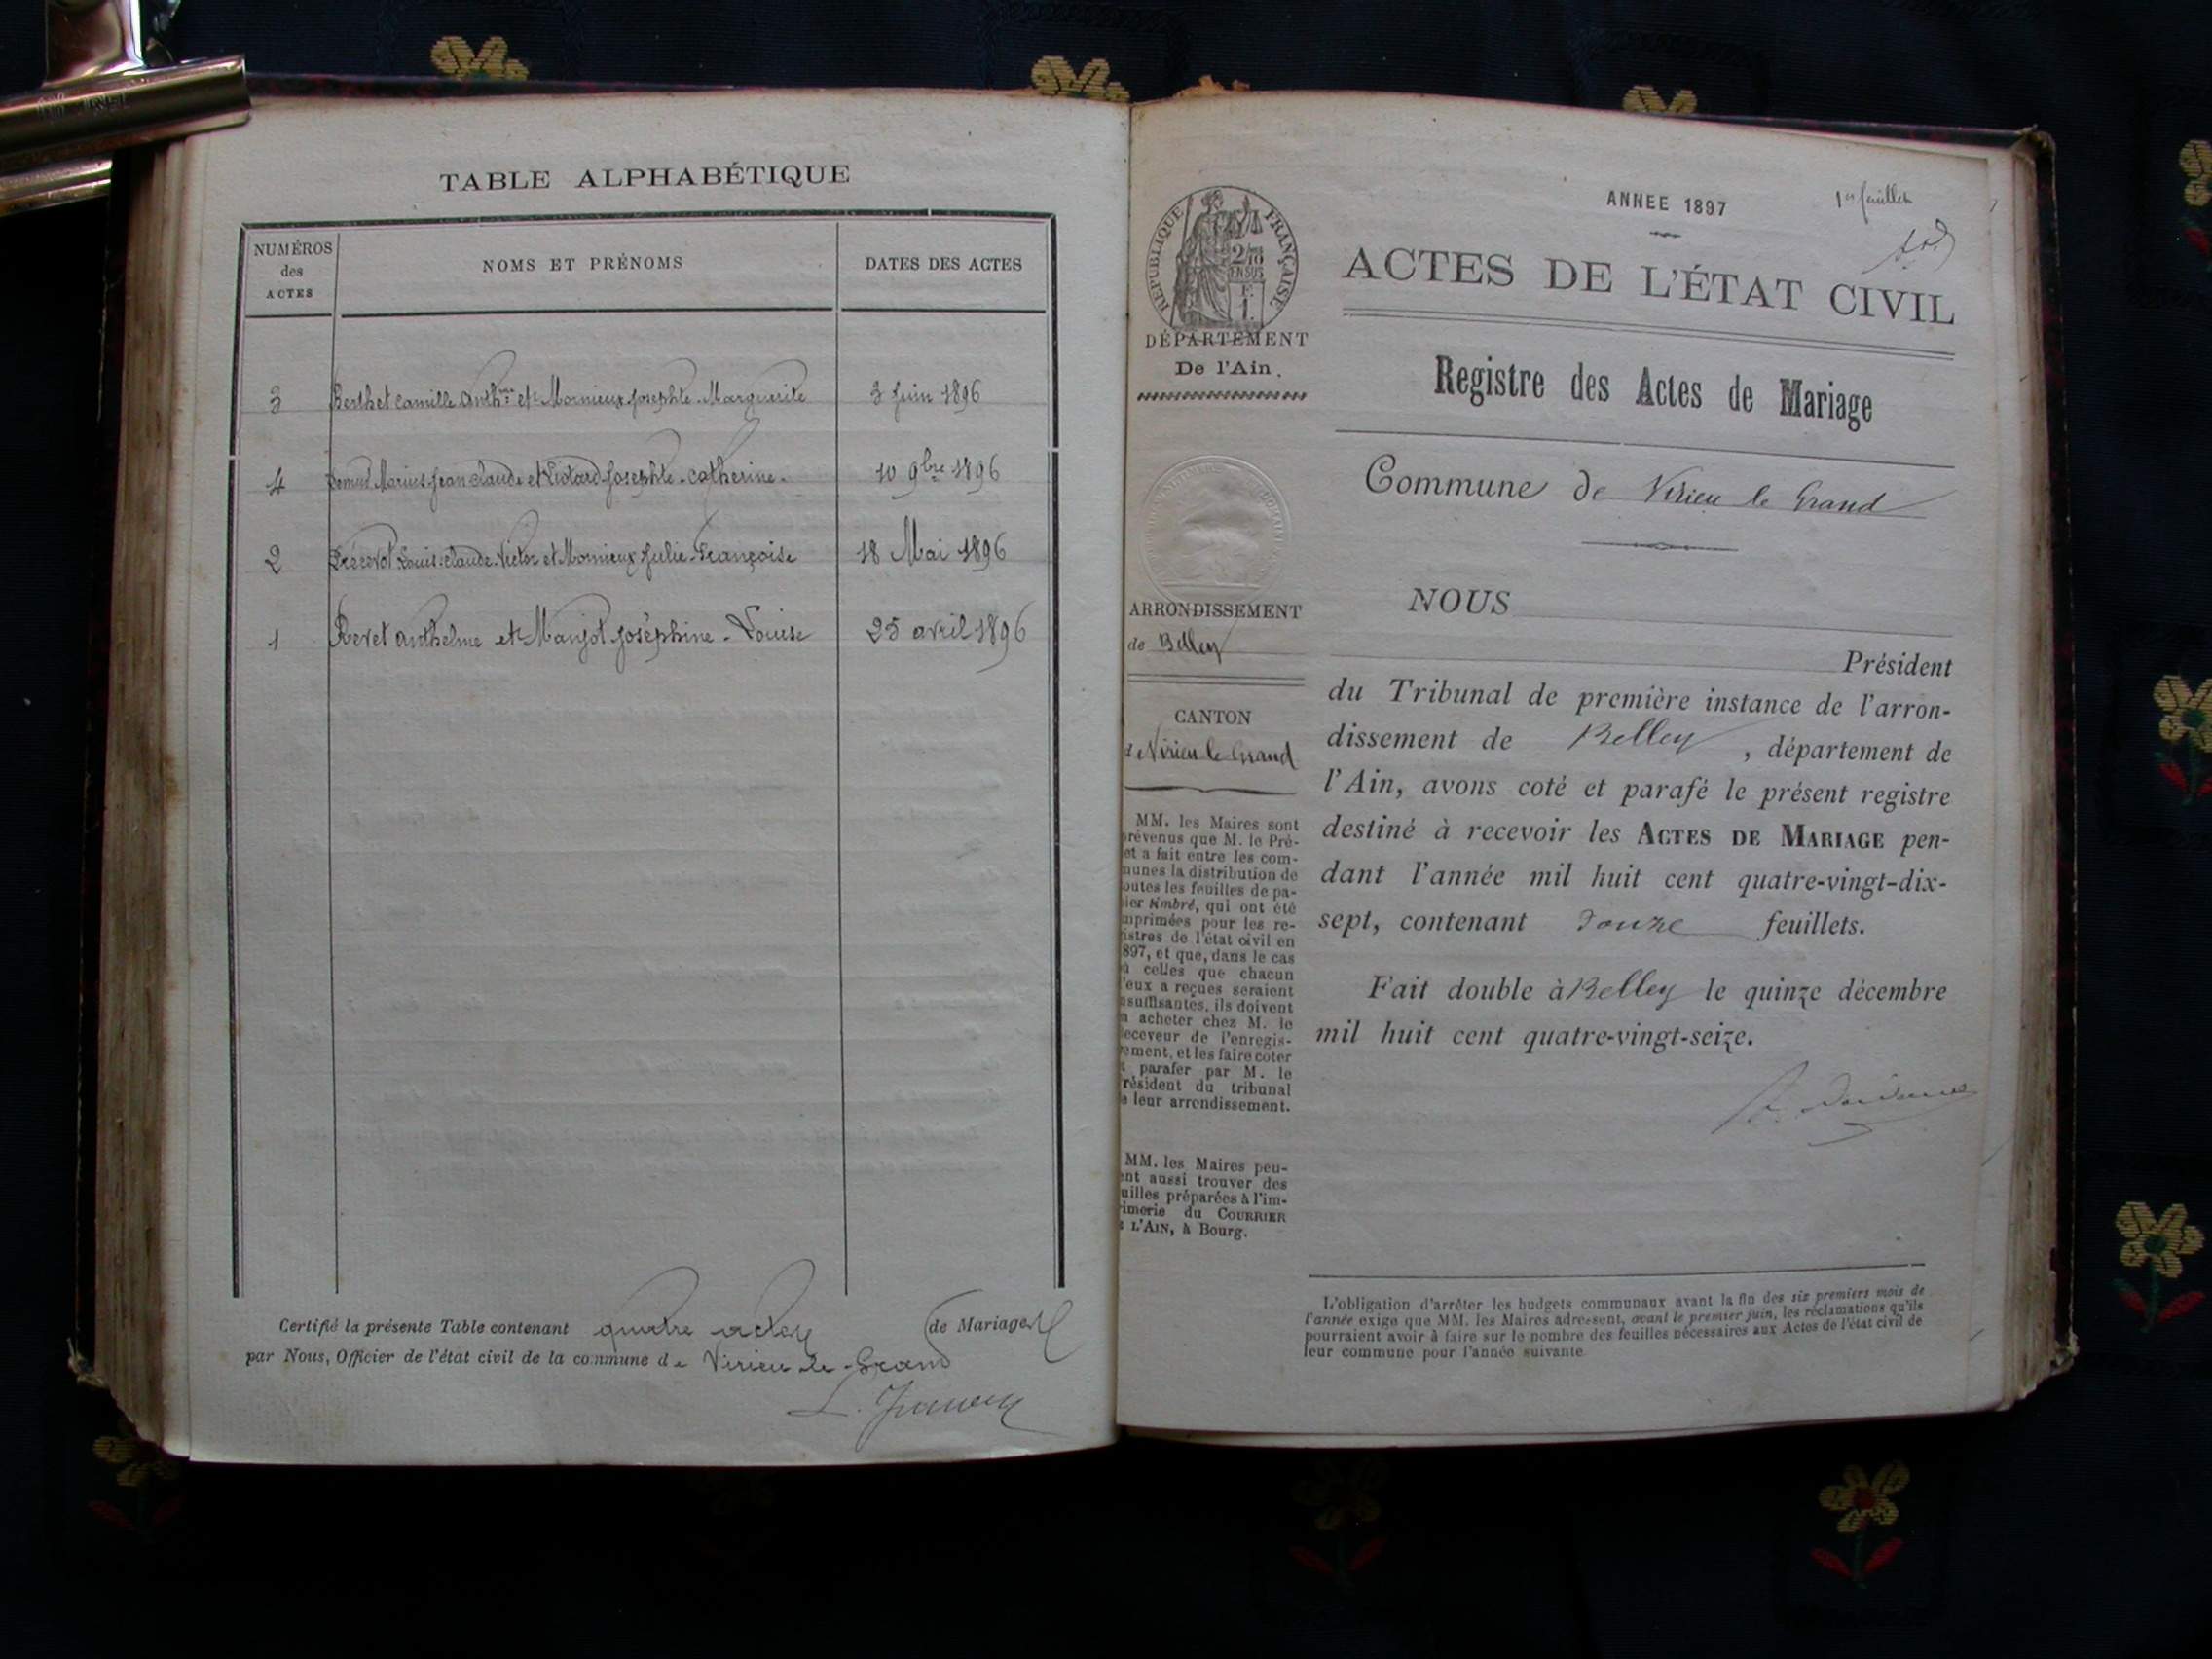 TABLE ALPHABÉTIQUE
NUMÉROS
des
ACTES
NOMS ET PRÉNOMS
DATES DES ACTES
3 Berthet Camille Anth.me et Mornieux Josephte-Marguerite 3 Juin 1896
4 Marius Jean Claude et Josephte-Catherine. 10 9bre 1896
2 Louis-Claude-Victor et Mornieux Julie-Françoise 18 Mai 1896
1 Revet Anthelme et Manjot Joséphine-Louise 25 avril 1896
Certifié la présente Table contenant quatre actes de Mariages
par Nous, Officier de l'état civil de la commune de Virieu-le-Grand
ANNEE 1897
1er feuillet
RÉPUBLIQUE FRANÇAISE
2/10
EN SUS
F.
1.
ACTES DE L'ÉTAT CIVIL
DÉPARTEMENT
De l'Ain.
Registre des Actes de Mariage
Commune de Virieu le Grand
ARRONDISSEMENT
de Belley
CANTON
de Virieu le Grand
MM. les Maires sont
prévenus que M. le Pré-
et a fait entre les com-
munes la distribution de
outes les feuilles de pa-
ier timbré, qui ont été
mprimées pour les re-
istres de l'état civil en
897, et que, dans le cas
ù celles que chacun
'eux a reçues seraient
nsuffisantes, ils doivent
n acheter chez M. le
eceveur de l'enregis-
ement, et les faire coter
t parafer par M. le
résident du tribunal
e leur arrondissement.
MM. les Maires peu-
ent aussi trouver des
uilles préparées à l'im-
imerie du COURRIER
E L'AIN, à Bourg.
NOUS
Président
du Tribunal de première instance de l'arron-
dissement de Belley, département de
l'Ain, avons coté et parafé le présent registre
destiné à recevoir les ACTES DE MARIAGE pen-
dant l'année mil huit cent quatre-vingt-dix-
sept, contenant douze feuillets.
Fait double à Belley le quinze décembre
mil huit cent quatre-vingt-seize.
L'obligation d'arrêter les budgets communaux avant la fin des six premiers mois de
l'année exige que MM. les Maires adressent, avant le premier juin, les réclamations qu'ils
pourraient avoir à faire sur le nombre des feuilles nécessaires aux Actes de l'état civil de
leur commune pour l'année suivante